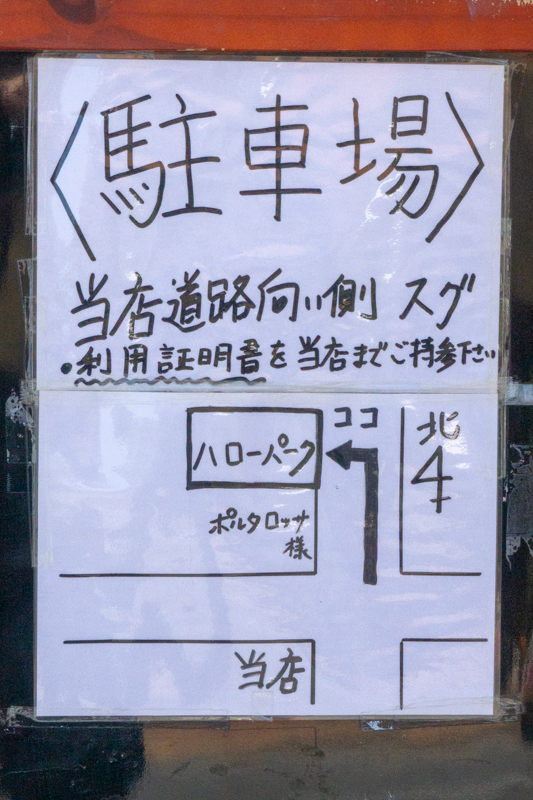 〈駐車場〉
当店道路向い側 スグ
•利用証明書を当店までご持参下さい
ココ
北
ハローパーク
ポルタロッサ
様
当店